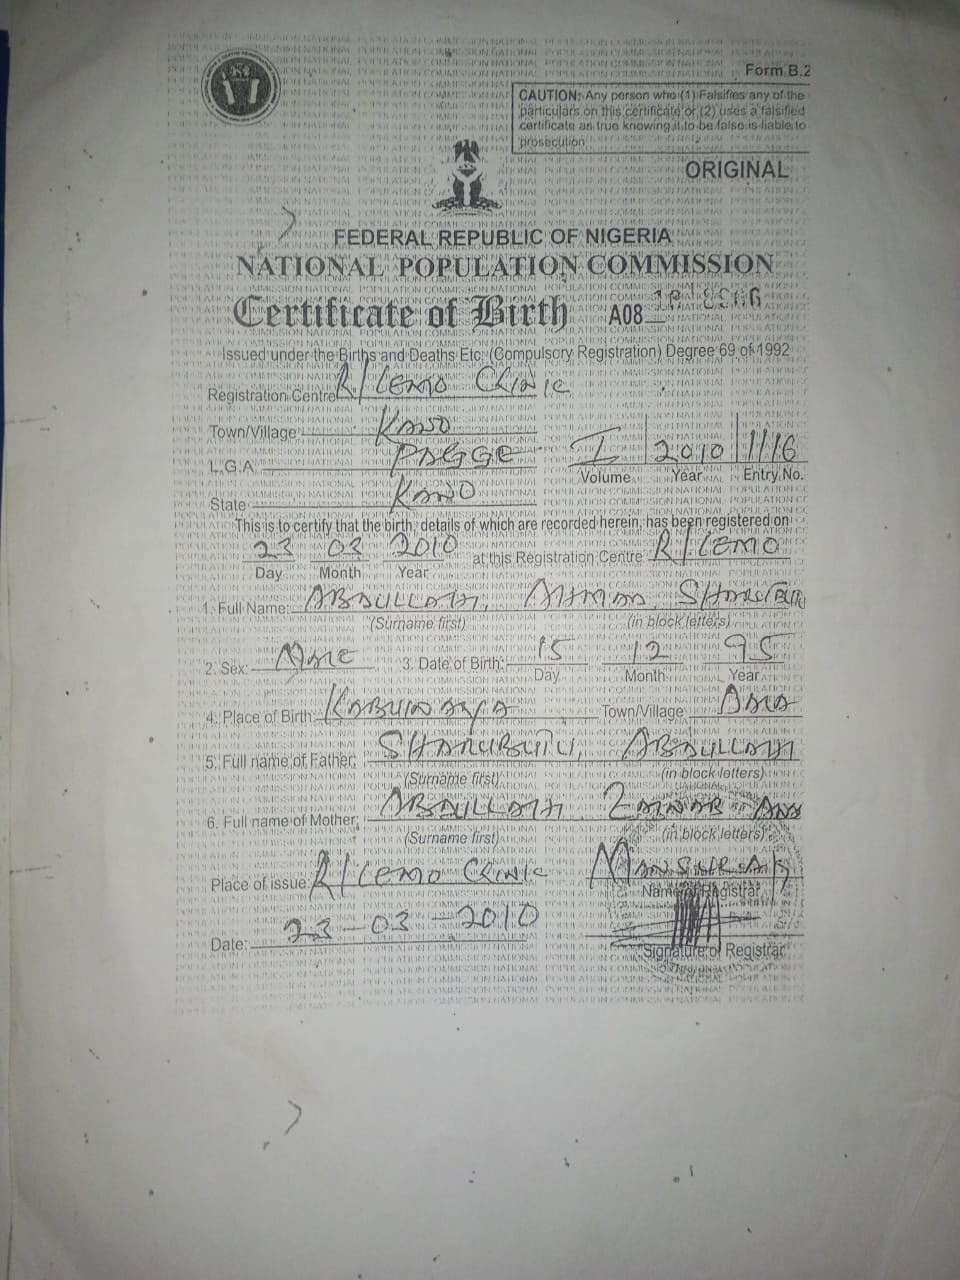 Form B.2
CAUTION: Any person who (1) Falsifies any of the
particulars on this certificate or (2) uses a falsified
certificate as true knowing it to be false is liable to
prosecution
ORIGINAL
FEDERAL REPUBLIC OF NIGERIA
NATIONAL POPULATION COMMISSION
Certificate of Birth A08
Issued under the Births and Deaths Etc. (Compulsory Registration) Degree 69 of 1992
Registration Centre R/LEMO CLINIC
Town/Village KANO
L.G.A I 2010 1116
Volume Year Entry No.
State KANO
This is to certify that the birth, details of which are recorded herein, has been registered on
23 03 2010 at this Registration Centre R/LEMO
Day Month Year
1. Full Name: ABDULLAHI,
(Surname first) (in block letters)
2. Sex: MALE 3. Date of Birth: 15 12 95
Day Month Year
4. Place of Birth Town/Village DALA
5. Full name of Father: ABDULLAHI
(Surname first) (in block letters)
6. Full name of Mother: ABDULLAHI ZAINAB
(Surname first) (in block letters)
Place of issue: R/LEMO CLINIC MANSUR
Name of Registrar
Date: 23-03-2010
Signature of Registrar